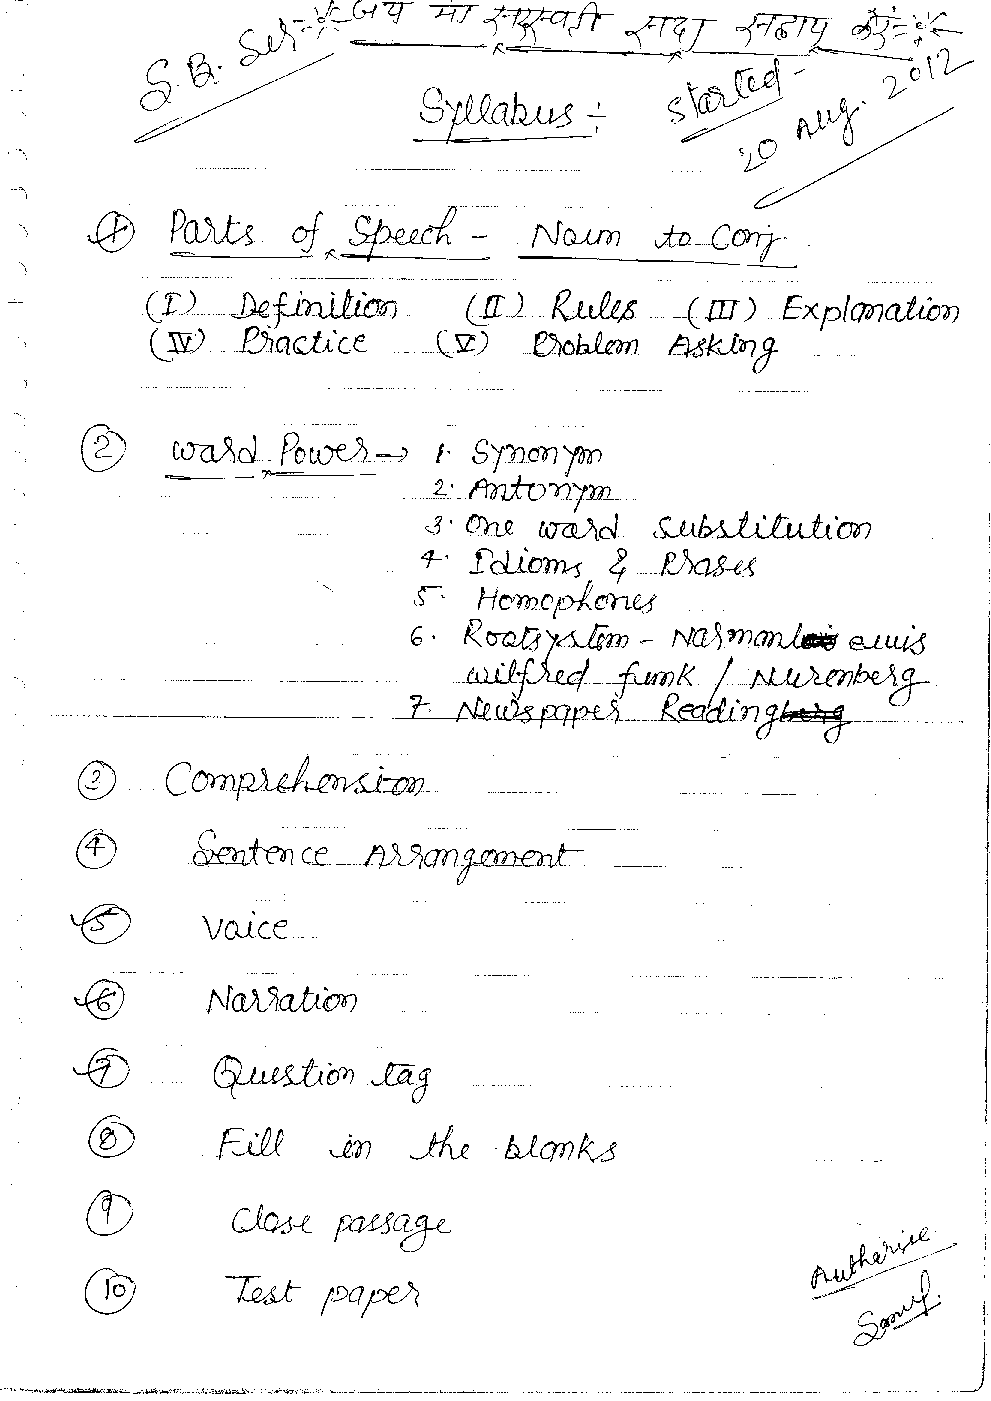 जय माँ सरस्वती सदा सहाय करें
S.B. Ser
Syllabus :-
Started -
20 Aug. 2012
1 Parts of Speech - Noun to Conj.
(I) Definition (II) Rules (III) Explanation
(IV) Practice (V) Problem Asking
2 Word Power → 1. Synonym
2. Antonym
3. One word substitution
4. Idioms & Phrases
5. Homophones
6. Rootsystem - Norman Lewis
wilfred funk / Nurenberg
7. Newspaper Reading
3 Comprehension
4 Sentence Arrangement
5 Voice
6 Narration
7 Question tag
8 Fill in the blanks
9 Close passage
10 Test paper
Autherise